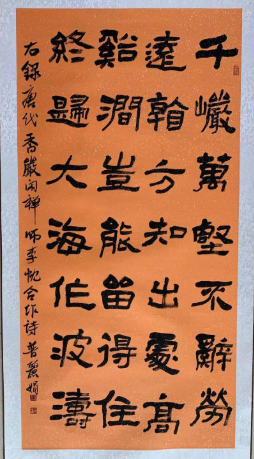 千巖萬壑不辭勞
遠看方知出處高
谿澗豈能留得住
終歸大海作波濤
右錄唐代香嚴閑禪師李忱合作詩